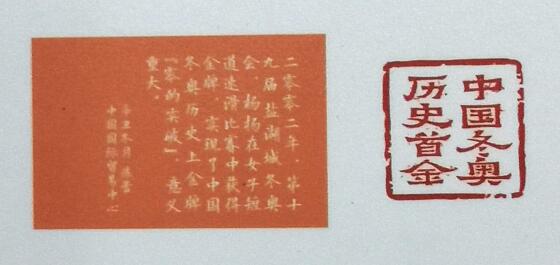 二零零二年，第十
九届盐湖城冬奥
会，杨扬在女子短
道速滑比赛中获得
金牌，实现了中国
冬奥历史上金牌
『零的突破』，意义
重大。
辛丑冬月
中国国际贸易中心
中国冬奥
历史首金